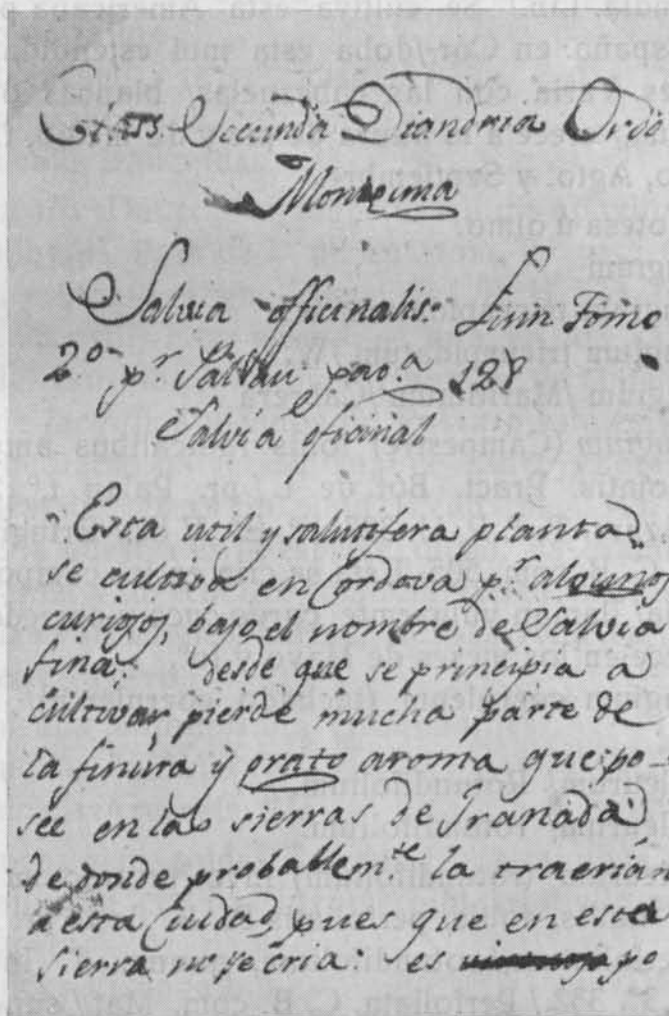 Class. Secunda Diandria Ordo
Monogima
Salvia officinalis. Linn Tomo
2º pr Palau pag.a 128
Salvia oficinal
Esta util y salutifera planta
se cultiva en Cordova pr algunos
curiosos, bajo el nombre de Salvia
fina: desde que se principia a
cultivar, pierde mucha parte de
la finura y grato aroma que po-
see en las sierras de Granada
de donde probablemte la traerián
a esta Ciudad, pues que en esta
sierra no se cria: es po